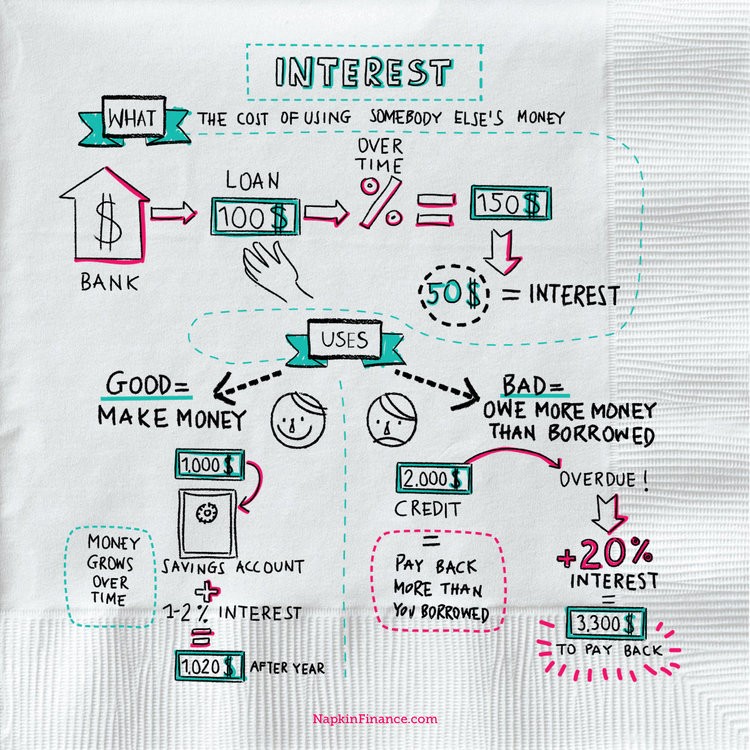 INTEREST
WHAT
THE COST OF USING SOMEBODY ELSE'S MONEY
$
BANK
LOAN
100$
OVER
TIME
%
=
150$
50$ = INTEREST
USES
GOOD=
MAKE MONEY
1,000$
SAVINGS ACCOUNT
+
1-2% INTEREST
=
1,020$ AFTER YEAR
MONEY
GROWS
OVER
TIME
BAD=
OWE MORE MONEY
THAN BORROWED
2,000$
CREDIT
=
PAY BACK
MORE THAN
YOU BORROWED
OVERDUE!
+20%
INTEREST
=
3,300$
TO PAY BACK
NapkinFinance.com